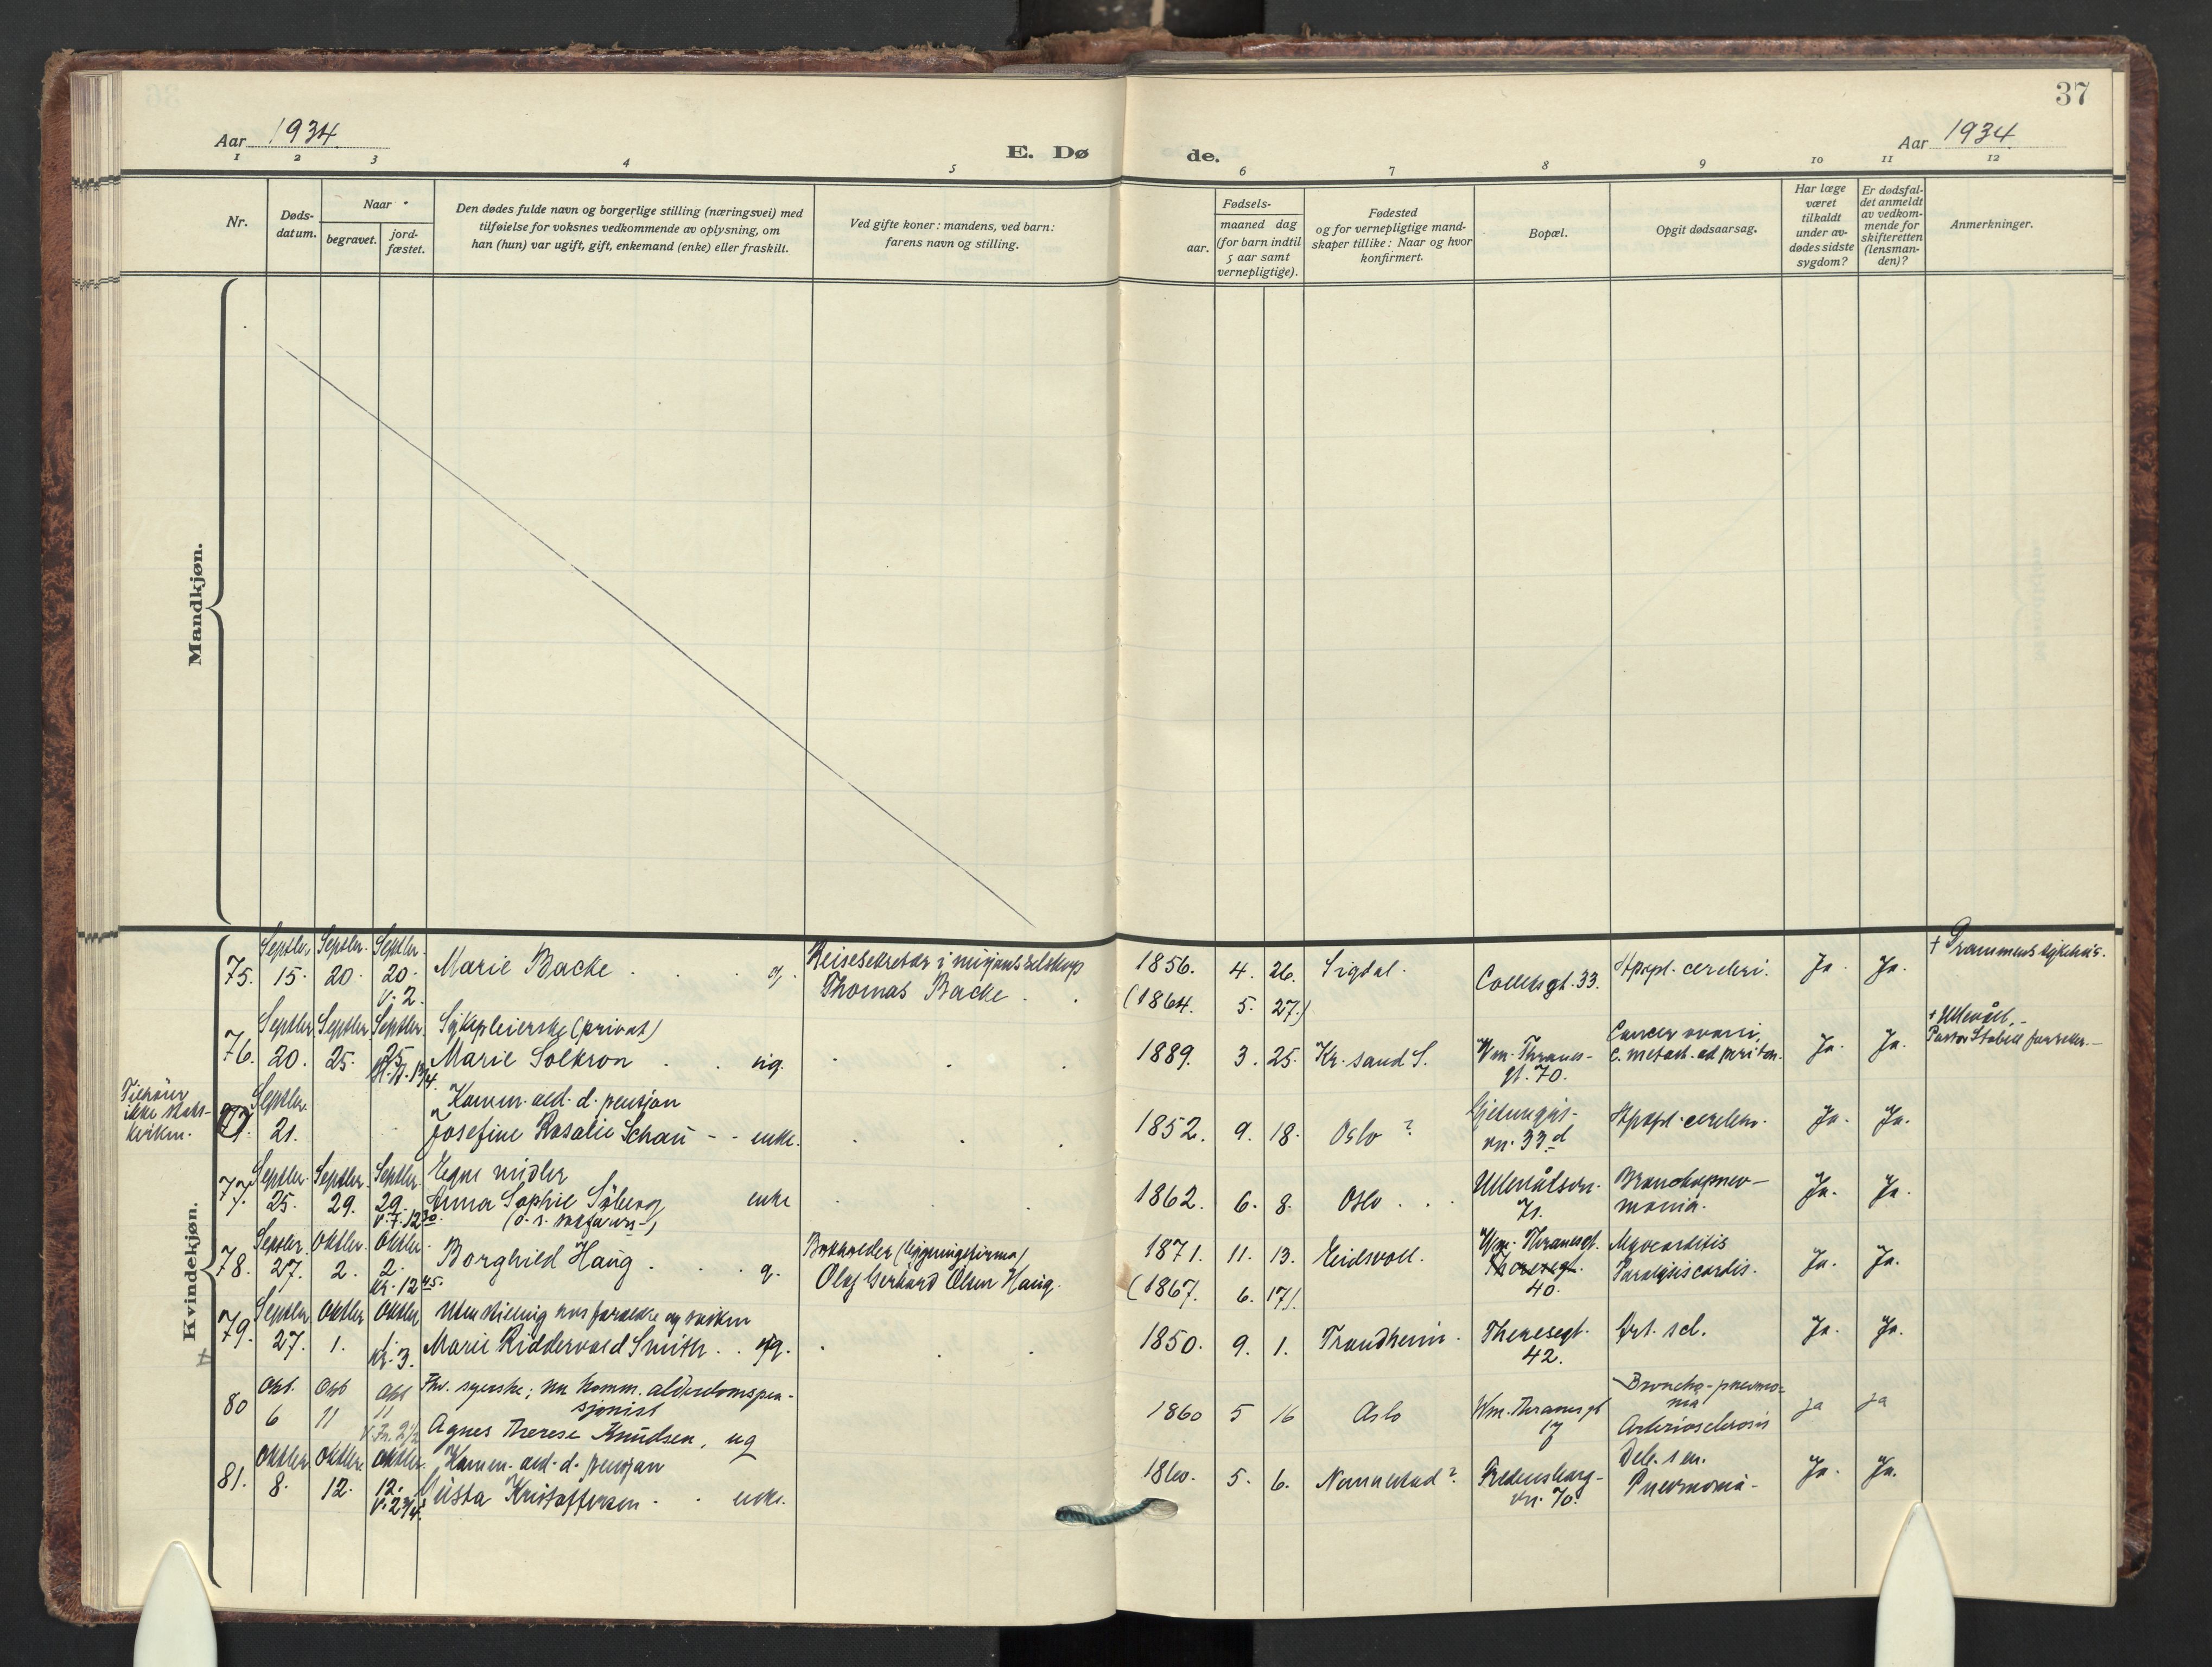 37
Aar 1934
E. Dø
de.
Aar 1934
1 2 3 4 5 6 7 8 9 10 11 12
Nr.
Døds-
datum.
Naar
begravet.
jord-
fæstet.
Den dødes fulde navn og borgerlige stilling (næringsvei) med
tilføielse for voksnes vedkommende av oplysning, om
han (hun) var ugift, gift, enkemand (enke) eller fraskilt.
Ved gifte koner: mandens, ved barn:
farens navn og stilling.
Fødsels-
aar.
maaned dag
(for barn indtil
5 aar samt
vernepligtige).
Fødested
og for vernepligtige mand-
skaper tillike: Naar og hvor
konfirmert.
Bopæl.
Opgit dødsaarsag.
Har læge
været
tilkaldt
under av-
dødes sidste
sygdom?
Er dødsfal-
det anmeldt
av vedkom-
mende for
skifteretten
(lensman-
den)?
Anmerkninger.
Mandkjøn.
Kvindekjøn.
Septbr. Septbr. Septbr. Reisesekretær i misjonsselskap + Drammens sykehus.
75. 15. 20. 20. Marie Backe g. Thomas Backe 1856. 4. 26. Sigdal. Colletsgt. 33. Apopl. cerebri. Ja. Ja.
V. 2. (1864. 5. 27.)
Septbr. Septbr. Septbr. Sykepleierske (privat) Cancer ovarii, + Ullevål.
76. 20. 25. 25. Marie Solkron ug. 1889. 3. 25. Kr.sand S. Wm. Thranes- c. metast. ad periton. Ja. Ja. Pastor
gt. 70.
Tilhører
ikke stats-
kirken.
Septbr. Komm. ald. d. pensjon
21. Josefine Rosalie Schau enke. 1852. 9. 18. Oslo? Apopl. cerebri. Ja. Ja.
vn. 33 d
Septbr. Septbr. Septbr. Egne midler
77. 25. 29. 29. Anna Sophie Söberg enke 1862. 6. 8. Oslo Ullevålsvn. Bronchopneu-
71. monia. Ja. Ja.
Septbr. Oktbr. Oktbr. Bokholder
78. 27. 2. 2. Borghild Haug g. Olaf Gerhard Olsen Haug. 1871. 11. 13. Eidsvoll. Wm. Thranesgt. Myocarditis
Kr. 12 45. (1867. 6. 17). Theresegt. 40. Paralysis cordis. Ja. Ja.
Septbr. Oktbr. Oktbr. Uten stilling hos foreldre og søsken
79. 27. 1. 1. Marie Riddervold Smith ug. 1850. 9. 1. Trondheim. Theresegt. Art. scl. Ja. Ja.
Kr. 3. 42.
Okt. Okt Okt Fhv. syerske; nu komm. alderdomspen-
sjonist Broncho-pneumo-
80 6 11 11 Agnes Therese Knudsen, ug 1860 5 16 Oslo Wm. Thranesgt nia ja ja
V. Fr. 2 1/2 17 Arteriosclerosis
Oktbr. Oktbr. Oktbr. Komm. ald. d. pensjon Deb. sen.
81. 8. 12. 12. Gusta Kristoffersen enke. 1860. 5. 6. Nannestad? Fredensborg- Pneumonia Ja. Ja.
V. 2 3/4. vn. 70.